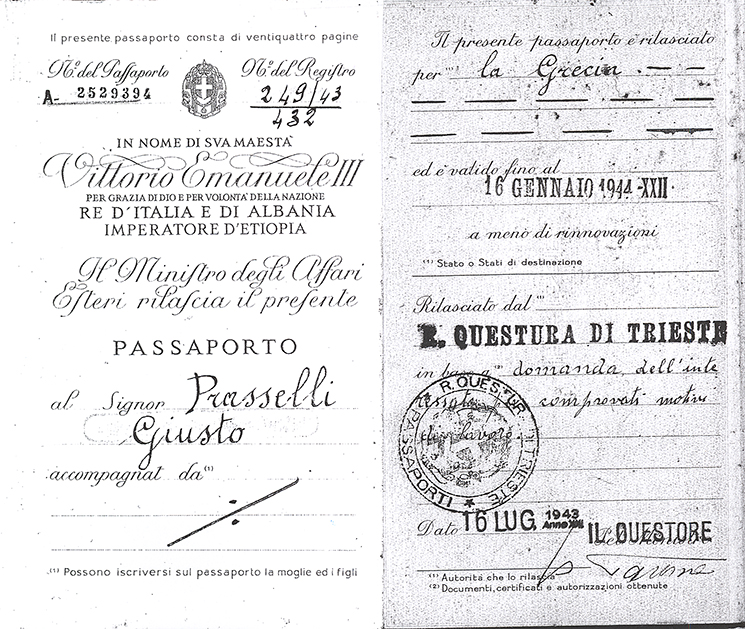 Il presente passaporto consta di ventiquattro pagine
N.º del Passaporto
N.º del Registro
A- 2529394
249/43
432
IN NOME DI SVA MAESTÀ
Vittorio Emanuele III
PER GRAZIA DI DIO E PER VOLONTÀ DELLA NAZIONE
RE D'ITALIA E DI ALBANIA
IMPERATORE D'ETIOPIA
Il Ministro degli Affari
Esteri rilascia il presente
PASSAPORTO
al Signor Prasselli
Giusto
accompagnat da (1)
(1) Possono iscriversi sul passaporto la moglie ed i figli
Il presente passaporto è rilasciato
per (1) la Grecia
ed è valido fino al
16 GENNAIO 1944-XXII
a meno di rinnovazioni
(1) Stato o Stati di destinazione
Rilasciato dal (1)
R. QUESTURA DI TRIESTE
in base a (2) domanda dell'inte
ressato comprovati motivi
di lavoro.
R. QUESTURA DI TRIESTE
PASSAPORTI
Dato 16 LUG. 1943
Anno XXI
IL QUESTORE
(1) Autorità che lo rilascia
(2) Documenti, certificati e autorizzazioni ottenute